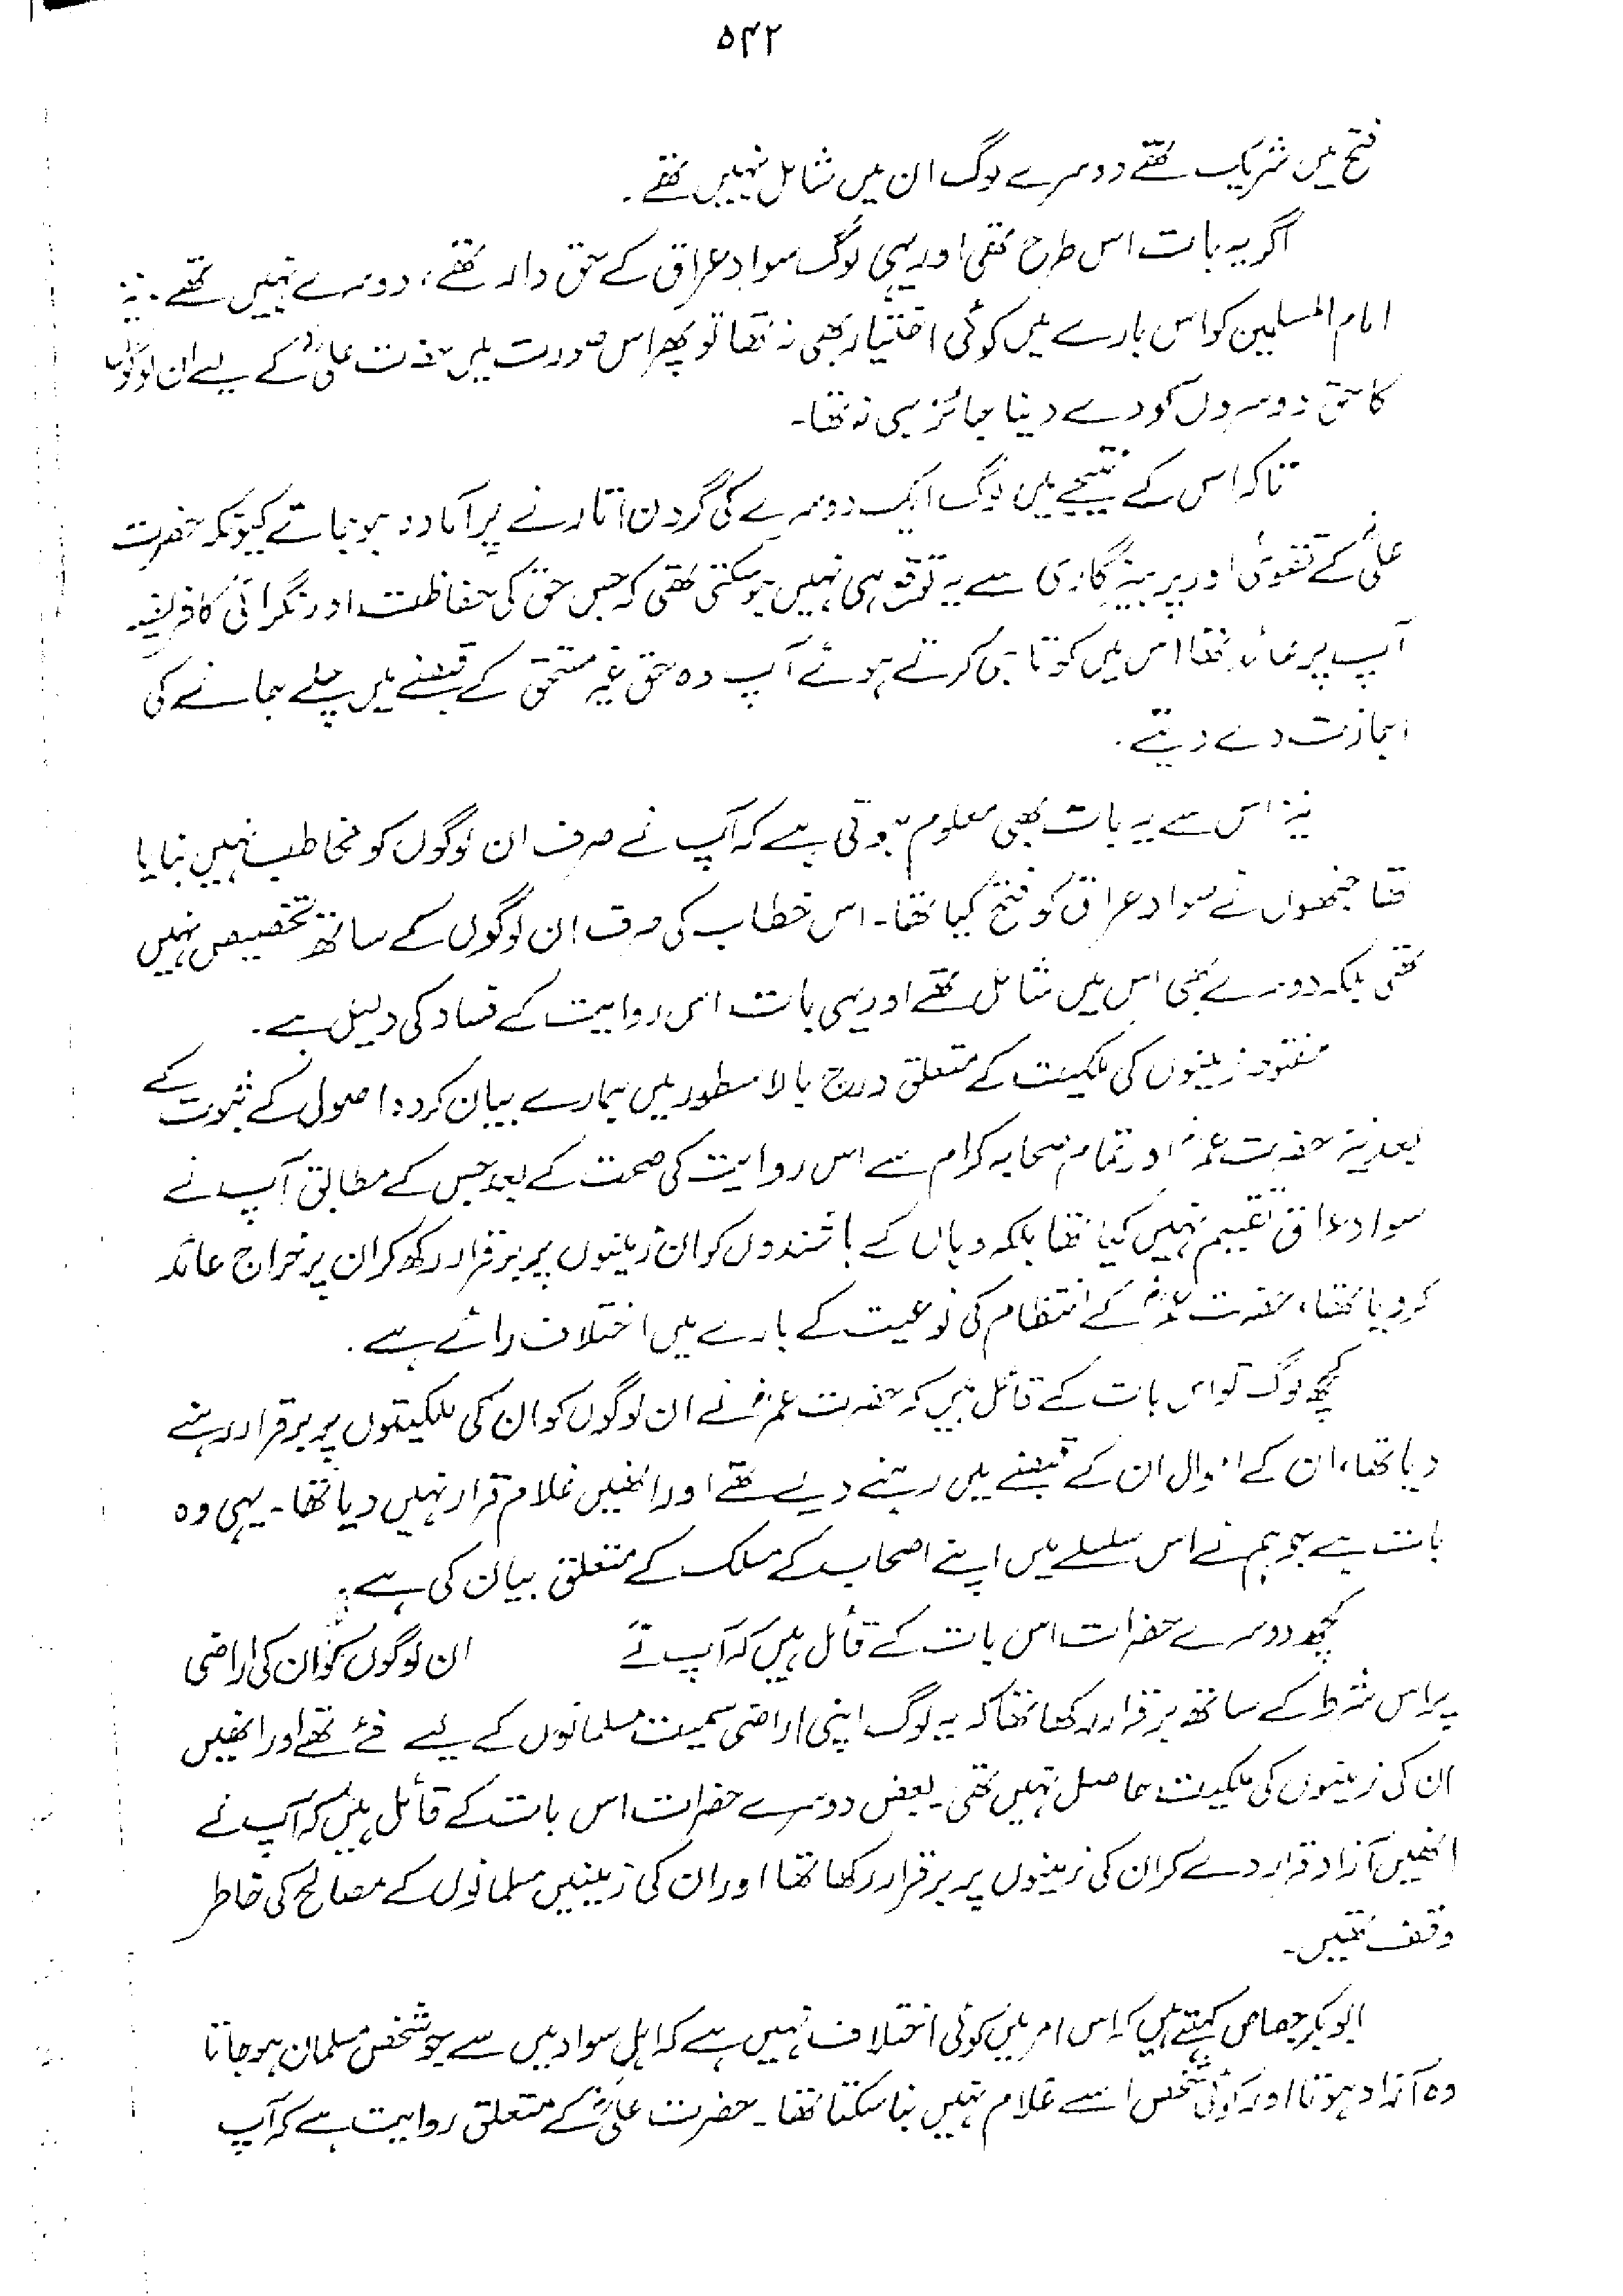 ۵۴۲
فتح میں شریک تھے دوسرے لوگ ان میں شامل نہیں تھے۔
اگر یہ بات اس طرح تھی اور یہی لوگ سواد عراق کے حق دار تھے، دوسرے نہیں تھے۔ نیز
امام المسلمین کو اس بارے میں کوئی اختیار بھی نہ تھا تو پھر اس صورت میں حضرت علیؓ کے لیے ان لوگوں
کا حق دوسروں کو دے دینا جائز ہی نہ تھا۔
تاکہ اس کے نتیجے میں لوگ ایک دوسرے کی گردن اتارنے پر آمادہ ہو جاتے کیونکہ حضرت
علیؓ کے تقویٰ اور پرہیزگاری سے یہ توقع ہی نہیں ہو سکتی تھی کہ جس حق کی حفاظت اور نگرانی کا فریضہ
آپ پر عائد تھا اس میں کوتاہی کرتے ہوئے آپ وہ حق غیر مستحق کے قبضے میں چلے جانے کی
اجازت دے دیتے۔
نیز اس سے یہ بات بھی معلوم ہوتی ہے کہ آپ نے صرف ان لوگوں کو مخاطب نہیں بنایا
تھا جنھوں نے سواد عراق کو فتح کیا تھا۔ اس خطاب کی صرف ان لوگوں کے ساتھ تخصیص نہیں
تھی بلکہ دوسرے بھی اس میں شامل تھے اور یہی بات اس روایت کے فساد کی دلیل ہے۔
مفتوحہ زمینوں کی ملکیت کے متعلق درج بالا سطور میں ہمارے بیان کردہ اصول کے ثبوت کے
بعد نیز حضرت عمرؓ اور تمام صحابہ کرام سے اس روایت کی صحت کے بعد جس کے مطابق آپ نے
سواد عراق تقسیم نہیں کیا تھا بلکہ وہاں کے باشندوں کو ان زمینوں پر برقرار رکھ کر ان پر خراج عائد
کر دیا تھا، حضرت عمرؓ کے انتظام کی نوعیت کے بارے میں اختلاف رائے ہے۔
کچھ لوگ تو اس بات کے قائل ہیں کہ حضرت عمرؓ نے ان لوگوں کو ان کی ملکیتوں پر برقرار رہنے
دیا تھا، ان کے اموال ان کے قبضے میں رہنے دیے تھے اور انھیں غلام قرار نہیں دیا تھا۔ یہی وہ
بات ہے جو ہم نے اس سلسلے میں اپنے اصحاب کے مسلک کے متعلق بیان کی ہے۔
کچھ دوسرے حضرات اس بات کے قائل ہیں کہ آپ نے ان لوگوں کو ان کی اراضی
پر اس شرط کے ساتھ برقرار رکھا تھا کہ یہ لوگ اپنی اراضی سمیت مسلمانوں کے لیے فئے تھے اور انھیں
ان کی زمینوں کی ملکیت حاصل نہیں تھی۔ بعض دوسرے حضرات اس بات کے قائل ہیں کہ آپ نے
انھیں آزاد قرار دے کر ان کی زمینوں پر برقرار رکھا تھا اور ان کی زمینیں مسلمانوں کے مصالح کی خاطر
وقف تھیں۔
ابوبکر جصاص کہتے ہیں کہ اس امر میں کوئی اختلاف نہیں ہے کہ اہل سواد میں سے جو شخص مسلمان ہو جاتا
وہ آزاد ہوتا اور کوئی شخص اسے غلام نہیں بنا سکتا تھا۔ حضرت علیؓ کے متعلق روایت ہے کہ آپ